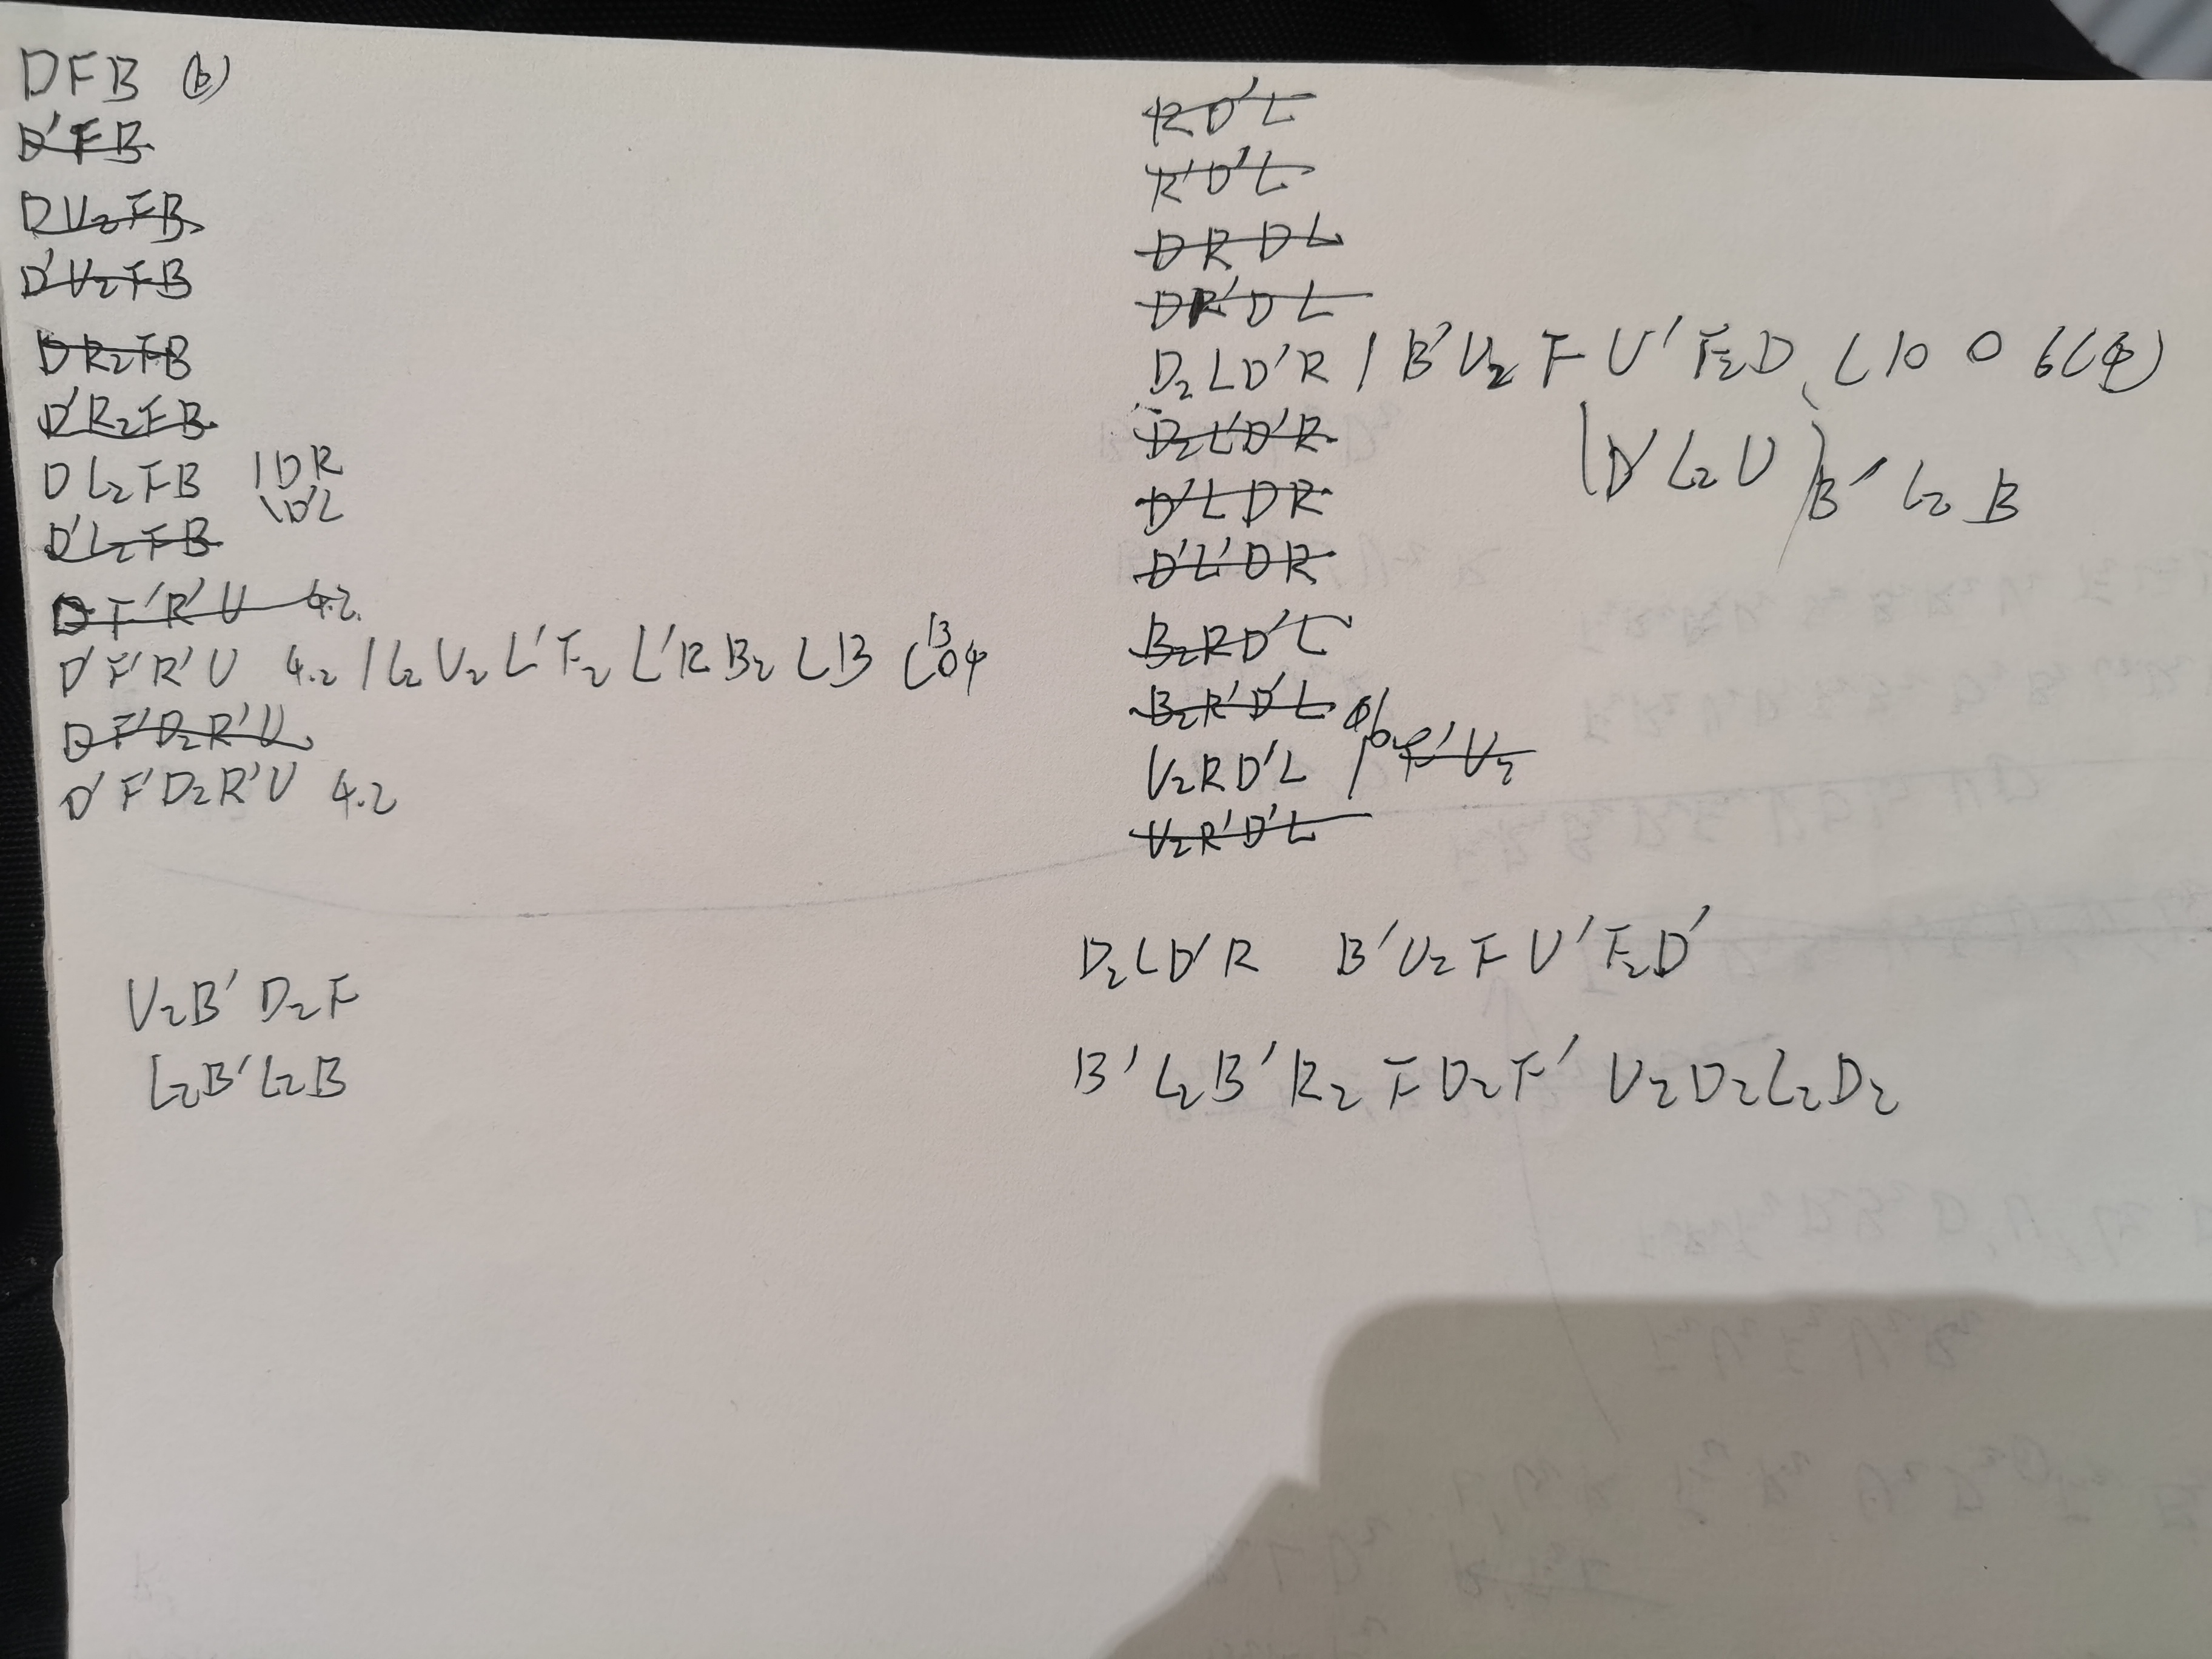 DFB (b)
D'FB
DU2FB
D'U2FB
DR2FB
D'R2FB
DL2FB / DR
\ D'L
D'L2FB
DF'R'U 4.2
D'F'R'U 4.2 / L2 U2 L' F2 L' R B2 L B (13 0 4
DF'D2R'U
D'F'D2R'U 4.2
U2B' D2F
L2B'L2B
RD'L
R'D'L
DRDL
DR'DL
D2LD'R / B'U2 F U' F2D (10 0 6(4)
D2L'D'R (D'L2U) B' L2 B
D'LDR
D'L'DR
B2RD'L
B2R'D'L
U2RD'L / F'U2
U2R'D'L
D2LD'R B'U2FU'F2D'
B'L2B'R2FD2F' U2D2L2D2